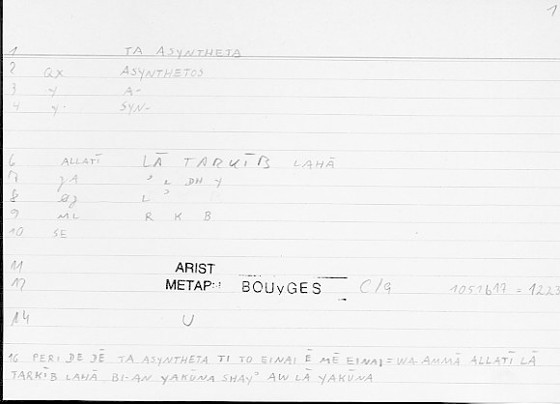 1
1 TA ASYNTHETA
2 QX ASYNTHETOS
3 Y A-
4 Y· SYN-
6 ALLATĪ LĀ TARKĪB LAHĀ
7 ʾ L DH Y
8 L ʾ
9 ML R K B
10 SE
11 ARIST
12 METAP: BOUyGES C/9 1051b17 = 1223
14 U
16 PERI DE DĒ TA ASYNTHETA TI TO EINAI Ē MĒ EINAI = WA-AMMĀ ALLATĪ LĀ
TARKĪB LAHĀ BI-AN YAKŪNA SHAYʾ AW LĀ YAKŪNA